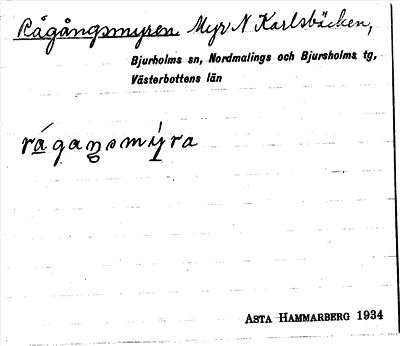 Rågångsmyren. Myr N Karlsbäcken,
Bjurholms sn, Nordmalings och Bjursholms tg,
Västerbottens län
rågansmyra
ASTA HAMMARBERG 1934